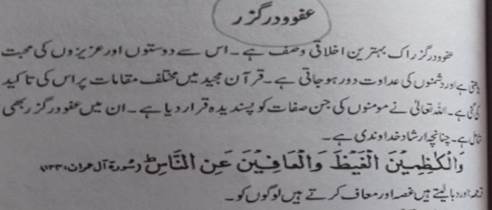 عفوودرگزر
عفوودرگزراک بہترین اخلاقی وصف ہے۔ اس سے دوستوں اور عزیزوں کی محبت
بڑھتی ہے اور دشمنوں کی عداوت دور ہو جاتی ہے۔ قرآن مجید میں مختلف مقامات پر اس کی تاکید
کی گئی ہے۔ اللہ تعالیٰ نے مومنوں کی جن صفات کو پسندیدہ قرار دیا ہے۔ ان میں عفوودرگزر بھی
شامل ہے۔ چنانچہ ارشاد خداوندی ہے۔
وَالْكٰظِمِيْنَ الْغَيْظَ وَالْعَافِيْنَ عَنِ النَّاسِ (سُورۃ آل عمران:۱۳۴)
ترجمہ: اور دبا لیتے ہیں غصہ اور معاف کرتے ہیں لوگوں کو۔